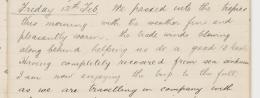 Friday 12th Feb. We passed into the tropics
this morning with the weather fine and
pleasantly warm. the trade winds blowing
along behind helping us do a good
Having completely recovered from sea sickness
I am now enjoying the trip to the full,
as we are travelling in company with